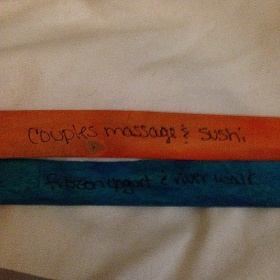 Couples massage & sushi
frozen yogurt & river walk